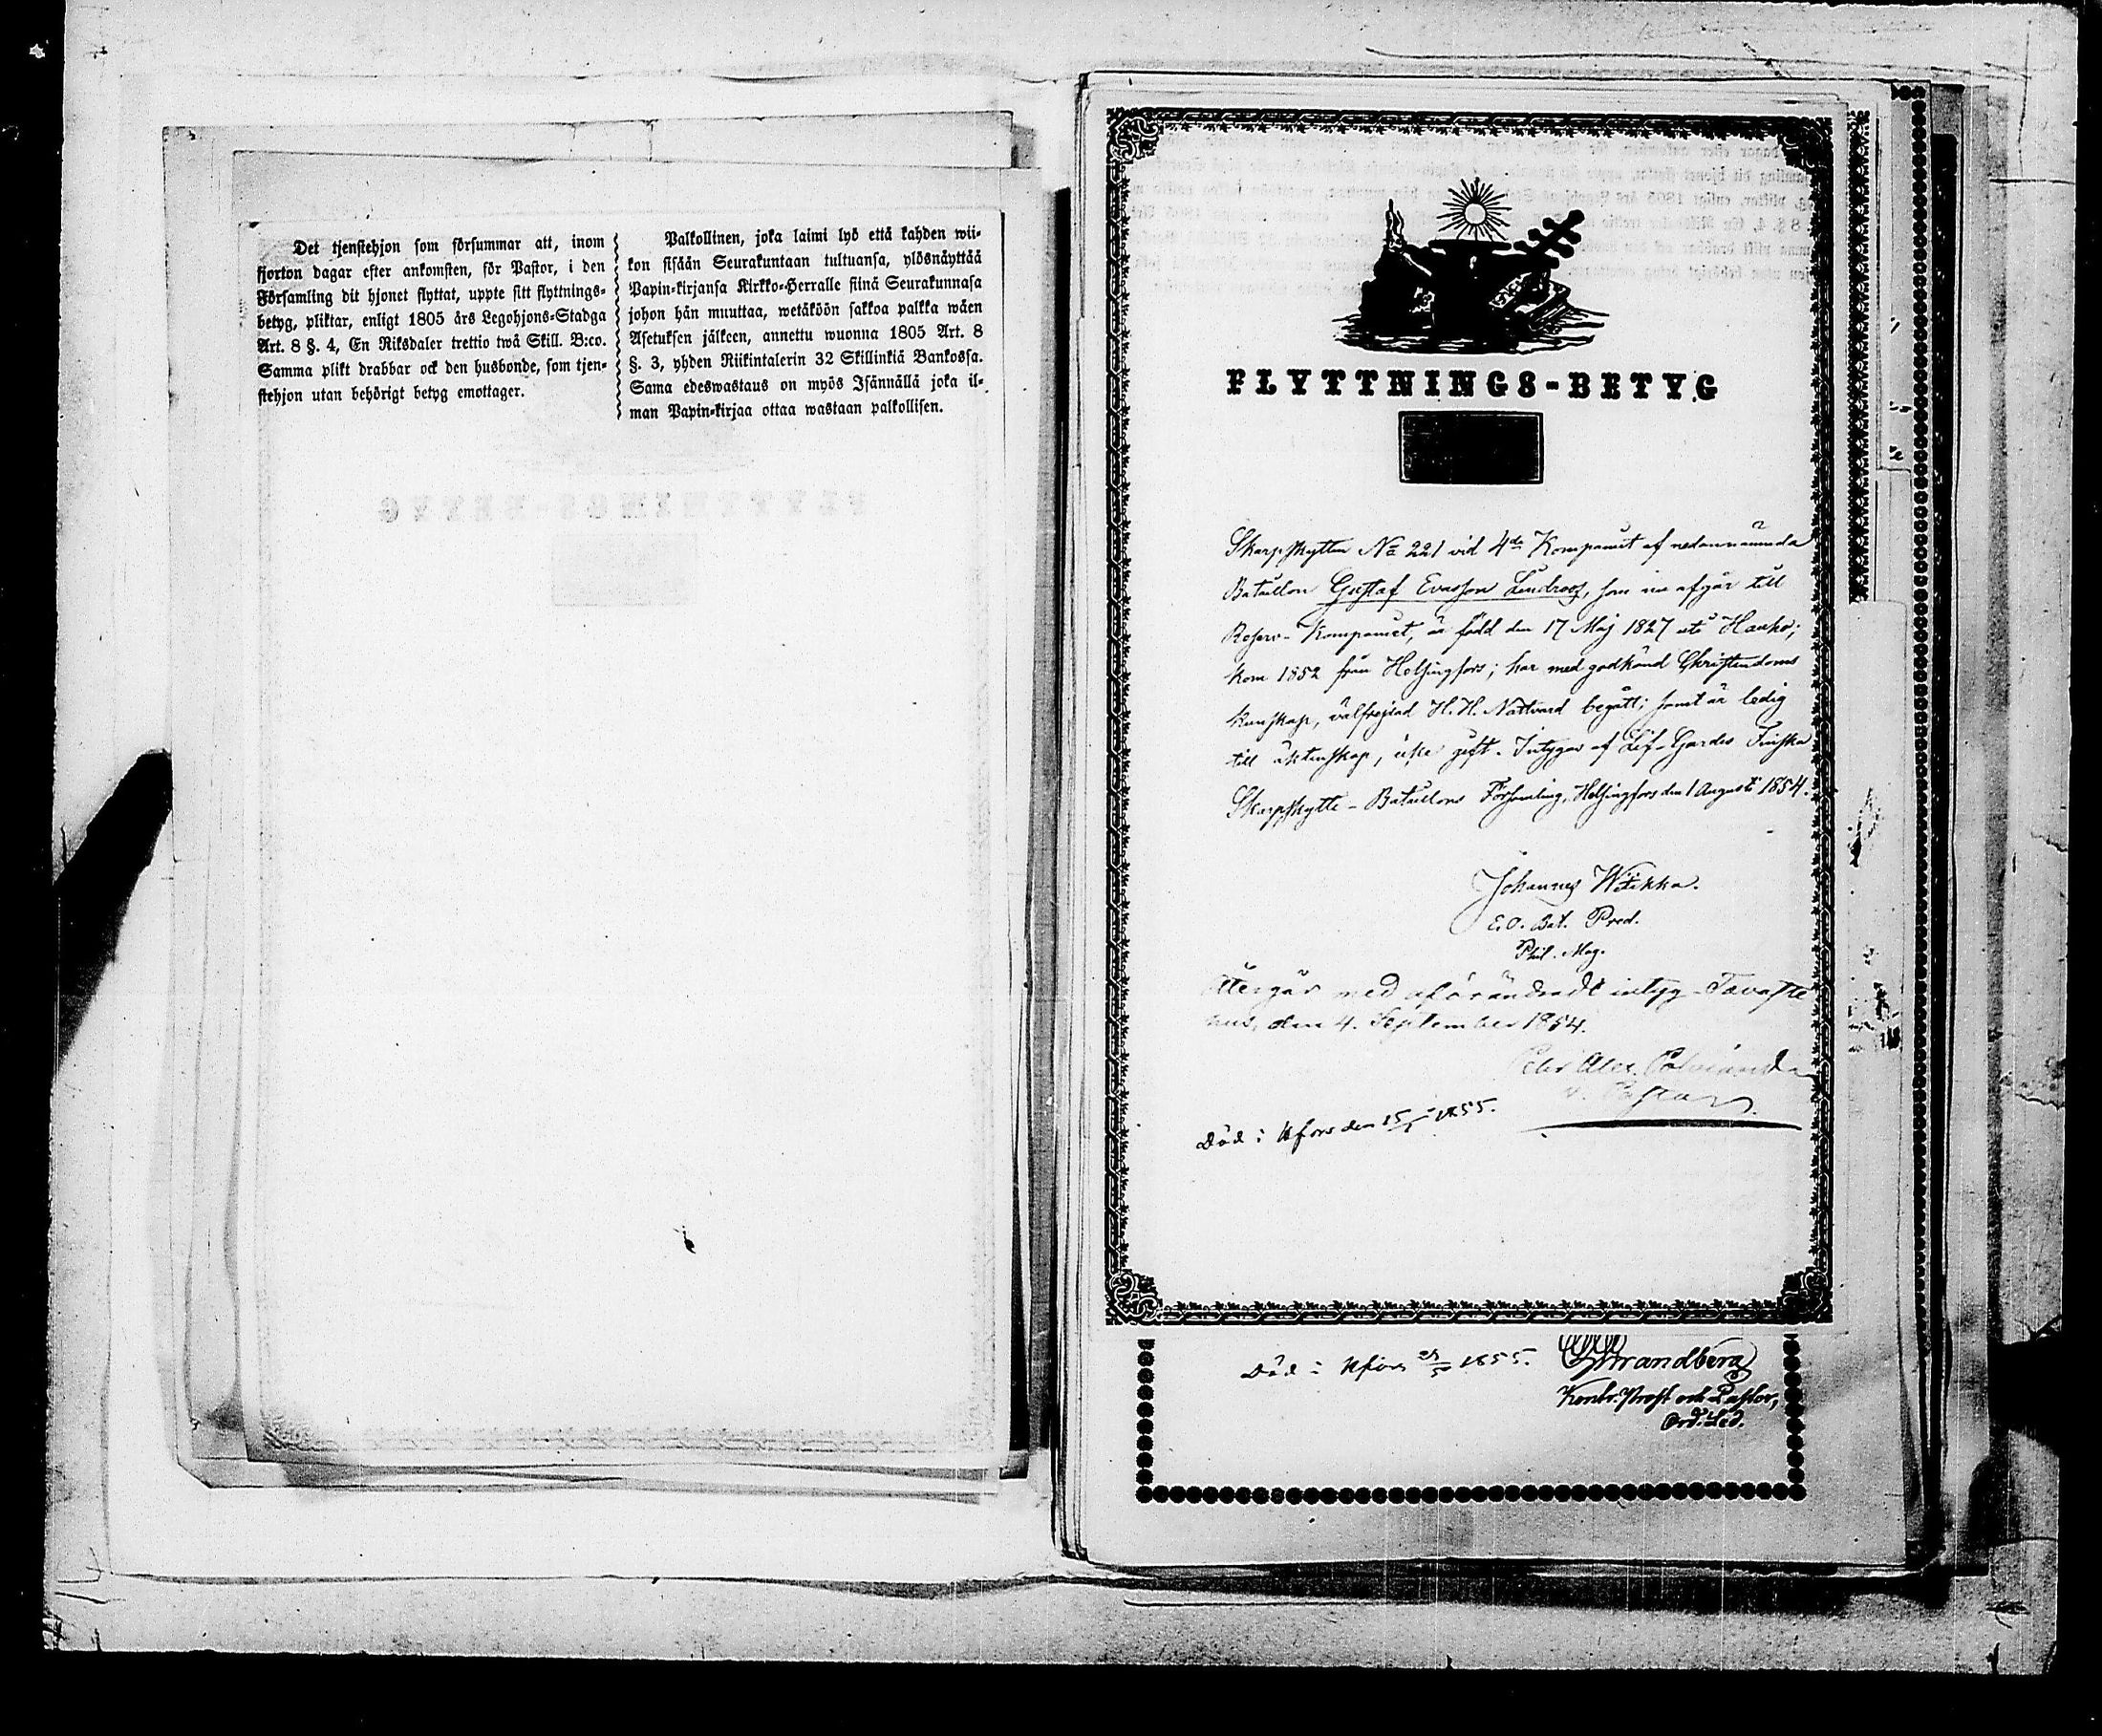 Det tjenstehjon som försummar att, inom
fjorton dagar efter ankomsten, för Pastor, i den
Församling dit hjonet flyttat, uppte sitt flyttnings-
betyg, pliktar, enligt 1805 års Legohjons-Stadga
Art. 8 §. 4, En Riksdaler trettio twå Skill. B:co.
Samma plikt drabbar ock den husbonde, som tjen-
stehjon utan behörigt betyg emottager.
Palkollinen, joka laimi lyö että kahden wii-
kon sisään Seurakuntaan tultuansa, ylösnäyttää
Papin-kirjansa Kirkko-Herralle siinä Seurakunnasa
johon hän muuttaa, wetäköön sakkoa palkka wäen
Asetuksen jälkeen, annettu wuonna 1805 Art. 8
§. 3, yhden Riikintalerin 32 Skillinkiä Bankossa.
Sama edeswastaus on myös Isännällä joka il-
man Papin-kirjaa ottaa wastaan palkollisen.
FLYTTNINGS-BETYG
Skarpskytten No 221 vid 4de Kompaniet af nedannämnda
Bataillon Gustaf Evasson Lindroos, som nu afgår till
Reserv-Kompaniet, är född den 17 Maj 1827 uti Hauho;
kom 1852 från Helsingfors; har med godkänd Christendoms
kunskap, välfrejdad H. H. Nattvard begått; samt är ledig
till äktenskap, icke gift. Intygar af Lif-Gardes Finska
Skarpskytte-Bataillons Församling, Helsingfors den 1 Augusti 1854.
Johannes Witikka.
E. O. Bat. Pred.
Phil. Mag.
Återgår med oförändradt intyg Tavaste
hus, den 4. September 1854.
v. Pastor.
Död i Hfors den 1855.
Död i Hfors 1855.
Strandberg
Kontr. Prost och Pastor,
Ord. Led.